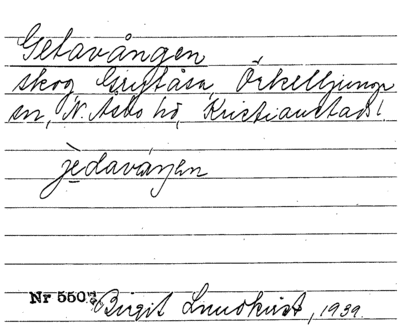 Getavången
skog Grytåsa, Örkelljunga
sn, N. Åsbo hd, Kristianstads l.
jèdaván̄en
Nr 5507 Birgit Lundkvist, 1939.